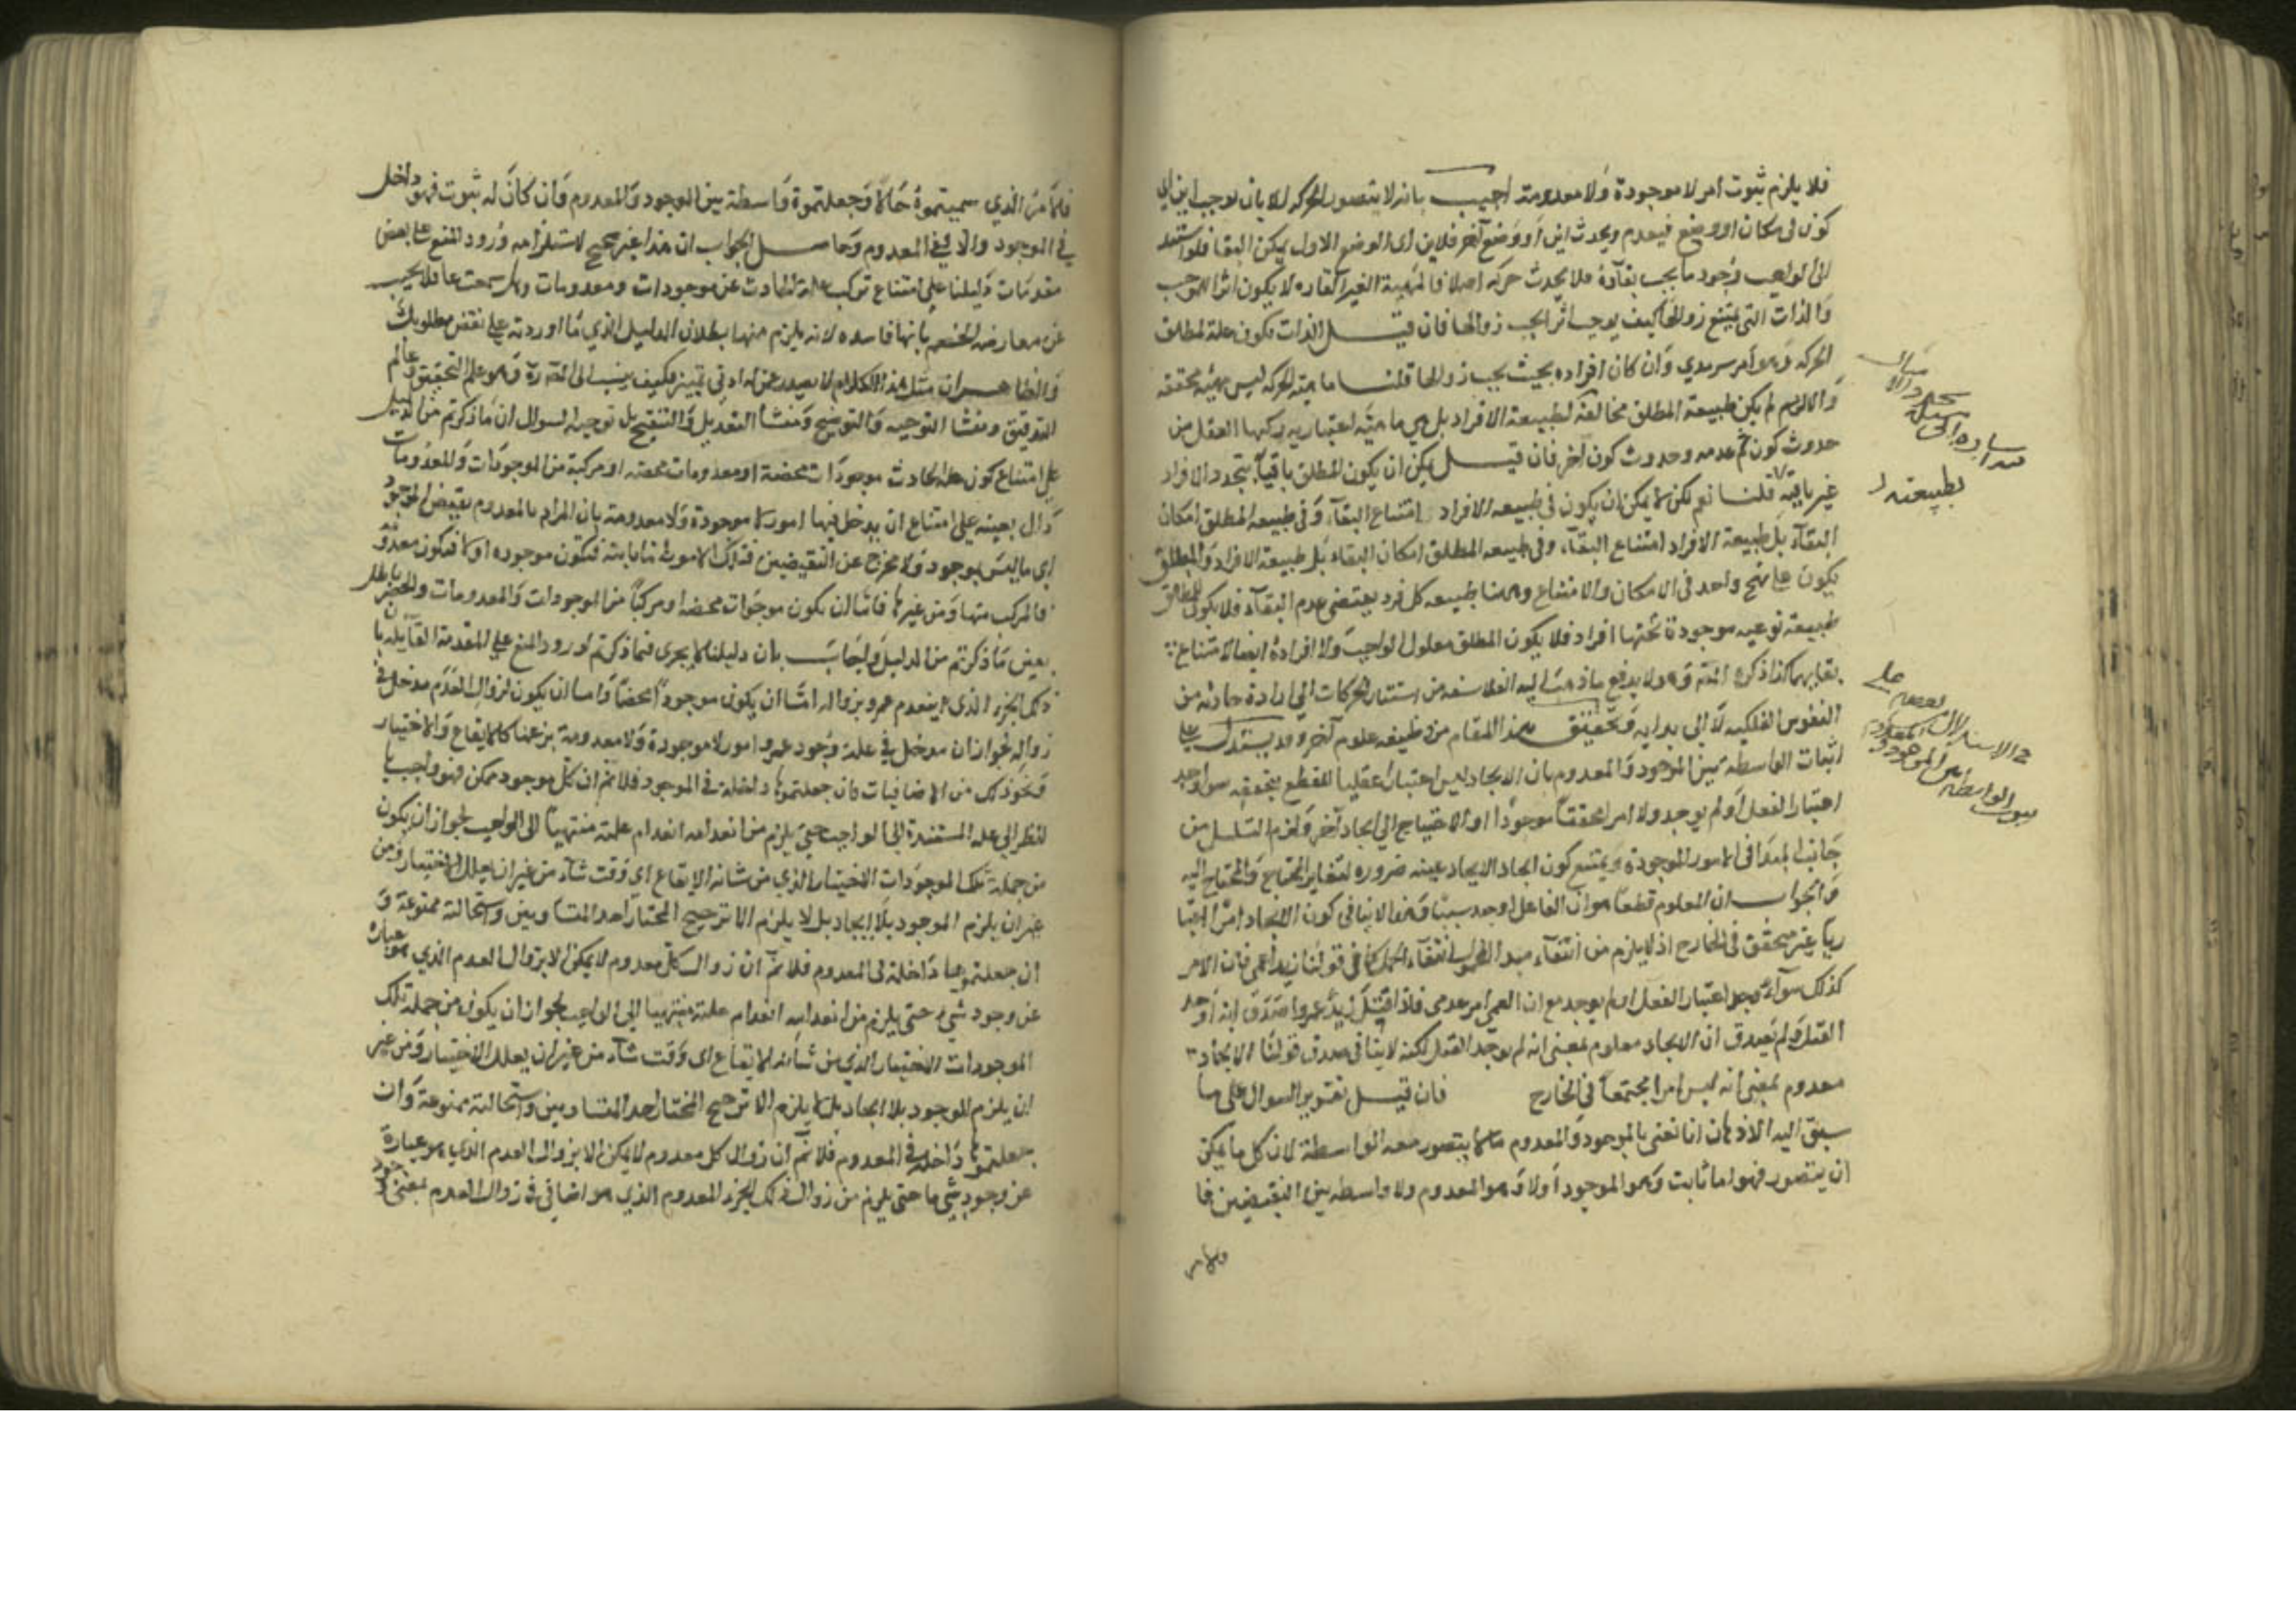 فلا يلزم ثبوت امر لا موجودة ولا معدومة اجيب بانه لا يتصور الحركة الا بان يوجب اين اي
كون في مكان او وضع فيعدم ويحدث اين او وضع آخر فلاين اي الوضع الاول يمكن البقا فلو استند
الى الواجب وجود ما يجب بقاؤه فلا يحدث حركة اصلا فالمهية الغير القاره لا يكون اثرا لموجب
والذات التي يمتنع زوالها كيف يوجب اثرا يجب زوالها فان قيل الذات يكون علة لمطلق
الحركه وهو امر سرمدي وان كان افراده بحيث يجب زوالها قلنا ماهية الحركه ليس مهية محققة
والا لم يكن طبيعة المطلق مخالفة لطبيعة الافراد بل هي ماهية اعتبارية ركبها العقل من
حدوث كون ثم عدمه وحدوث كون آخر فان قيل يمكن ان يكون المطلق باقيا بتجدد الافراد
غير باقية قلنا نعم لكن لا يمكن ان يكون في طبيعه الافراد امتناع البقاء وفي طبيعه المطلق امكان
البقاء بل طبيعة الافراد امتناع البقاء وفي طبيعه المطلق امكان البقاء بل طبيعة الافراد والمطلق
يكون على نهج واحد في الامكان والامتناع وههنا طبيعه كل فرد يقتضي عدم البقاء فلا يكون للمطلق
طبيعة نوعيه موجودة تحتها افراد فلا يكون المطلق معلول الواجب ولا افراده ايضا لامتناع
بقايها كذا ذكره المص وهو لا يدفع ما ذهب اليه الفلاسفه من استناد الحركات الى ارادة حادثه من
النفوس الفلكيه لا الى بدايه وتحقيق هذا المقام من وظيفه علوم آخر وقد يستدل على
اثبات الواسطه بين الموجود والمعدوم بان الايجاد ليس اعتبارا عقليا للقطع بتحققه سوا وجد
اعتبار الفعل او لم يوجد ولا امرا محققا موجودا والا احتياج الى ايجاد آخر ولزم التسلسل من
جانب المبدا في الامور الموجودة ويمتنع كون ايجاد الايجاد عينه ضروره لتغاير المحتاج والمحتاج اليه
والجواب ان المعلوم قطعا هو ان الفاعل اوجد شيئا وهذا لا ينافي كون الايجاد امرا اعتبا
ريا غير متحقق في الخارج اذ لا يلزم من انتفاء مبدا المحمول انتفاء الحمل كما في قولنا زيد اعمى فان الامر
كذلك سواء وجد اعتبار الفعل او لم يوجد مع ان العمى امر عدمي فاذا قتل زيد عمروا صدق انه اوجد
القتل ولم يصدق ان الايجاد معلوم بمعنى انه لم يوجد القتل لكنه لا ينافي صدق قولنا الايجاد
معدوم بمعنى انه ليس امرا مجتمعا في الخارج فان قيل تقرير السوال على ما
سبق اليه الاذهان انا نعني بالموجود والمعدوم ما لا يتصور معه الواسطة لان كل ما يمكن
ان يتصور فهو اما ثابت وهو الموجود اولا وهو المعدوم ولا واسطه بين النقيضين فا
بطبيعته
في الاستدلال
فالامر الذي سميتموه حالا وجعلتموه واسطة بين الموجود والمعدوم وان كان له ثبوت فهو داخل
في الموجود والا ففي المعدوم وحاصل الجواب ان هذا غير صحيح لاستلزامه ورود المنع على بعض
مقدمات دليلنا على امتناع تركب علة الحادث عن موجودات ومعدومات وهل سمعت عاقلا يجيب
عن معارضه الخصم بانها فاسده لانه يلزم منها بطلان الدليل الذي ما اوردته على نقض مطلوبك
والظاهر ان مثل هذا الكلام لا يصدر عن له ادنى تمييز فكيف ينسب الى المص وهو علم التحقيق وعالم
التدقيق ومنشا التوجيه والتوضيح ومنشأ التعديل والتنقيح بل توجيه السوال ان ما ذكرتم من الدليل
على امتناع كون علة الحادث موجودات محضة او معدومات محضه او مركبة من الموجودات والمعدومات
دال بعينه على امتناع ان يدخل فيها امور لا موجودة ولا معدومة بان المراد بالمعدوم نقيض الموجود
اي ما ليس بموجود ولا مخرج عن النقيضين فتلك الامور اما ثابتة فتكون موجوده او لا فتكون معدومة
فالمركب منها ومن غيرها فاما ان يكون موجوات محضه او مركبا من الموجودات والمعدومات والحصر باطل
بعض ما ذكرتم من الدليل والجاب بان دليلنا لا يجري فيما ذكرتم لورود المنع على المقدمة القائله بان
ذلك الجزء الذي ينعدم عمرو بزواله اما ان يكون موجودا محضا واما ان يكون لزوال العدم مدخل في
زواله لجواز ان مدخل في علة وجود عمرو امور لا موجودة ولا معدومة بزعمنا كالايقاع والاختيار
ونحو ذلك من الاضافيات فان جعلتموها داخلة في الموجود فلا نم ان كل موجود ممكن فهو واجب با
لنظر الى علة المستندة الى الواجب حتى يلزم من انعدامه انعدام علته منتهيا الى الواجب لجواز ان يكون
من جملة تلك الموجودات الاختيار الذي من شانه الايقاع اي وقت شاء من غير ان يعلل الاختيار ومن
غير ان يلزم الموجود بلا ايجاد بل لا يلزم الا ترجيح المختار احد المتساويين واستحالته ممنوعة و
ان جعلتموها داخلة في المعدوم فلا نم ان زوال كل معدوم لا يمكن الا بزوال العدم الذي هو عباره
عن وجود شيء حتى يلزم من انعدامه انعدام علته منتهيا الى الواجب لجواز ان يكون من جملة تلك
الموجودات الاختيار الذي من شانه الايقاع اي وقت شاء من غير ان يعلل الاختيار ومن غير
ان يلزم الموجود بلا ايجاد بل لا يلزم الا ترجيح المختار احد المتساويين واستحالته ممنوعة وان
جعلتموها داخلة في المعدوم فلا نم ان زوال كل معدوم لا يمكن الا بزوال العدم الذي هو عبارة
عن وجود شي ما حتى يلزم من زوال ذلك الجزء المعدوم الذي هو اضافي في زوال العدم بمعنى وجود